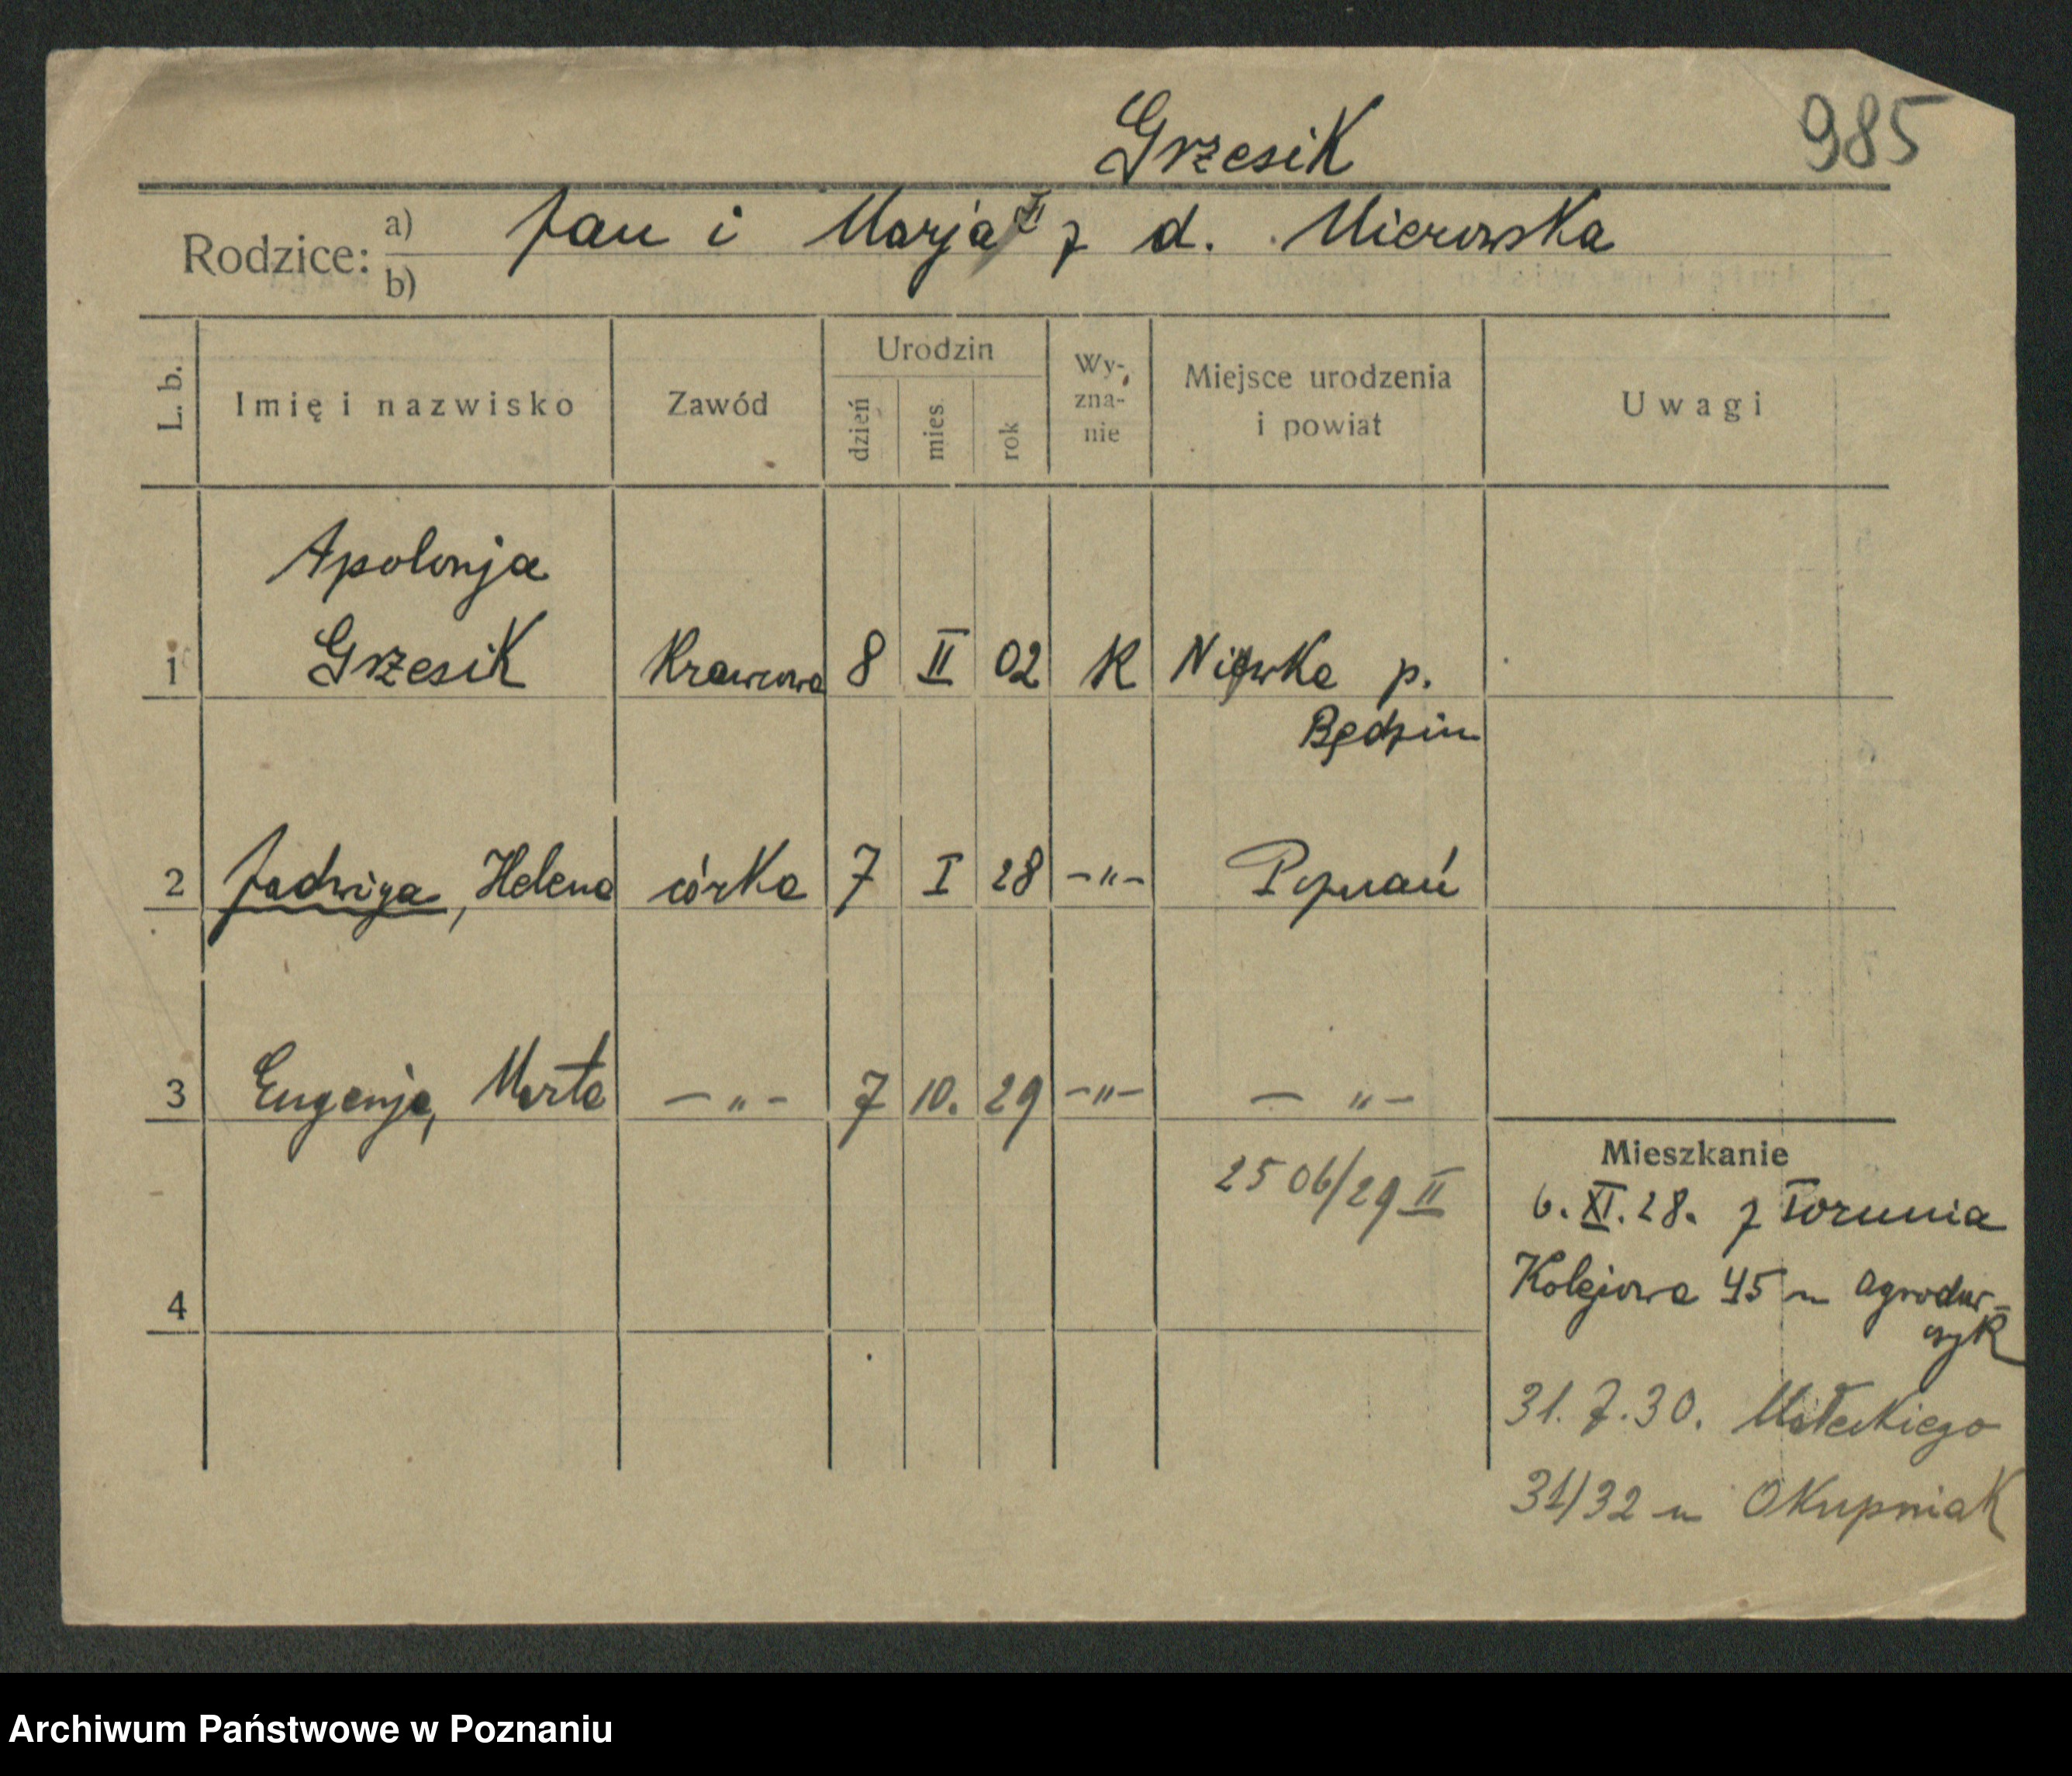 985
Grzesik
Rodzice: a) Jan i Marja z d. Mierowska
b)
L. b. Imię i nazwisko Zawód Urodzin dzień mies. rok Wy-zna-nie Miejsce urodzenia i powiat Uwagi
Apolonja
1 Grzesik Krawcowa 8 II 02 K Niwka p.
Będzin
2 Jadwiga, Helena córka 7 I 28 -"- Poznań
3 Eugenja, Marta -"- 7 10. 29 -"- -"-
2506/29 II
4
Mieszkanie
6. XI. 28. z Torunia
Kolejowa 45 u Ogrodow-
czyk
31. 7. 30. Małeckiego
31/32 u Okupniak
Archiwum Państwowe w Poznaniu